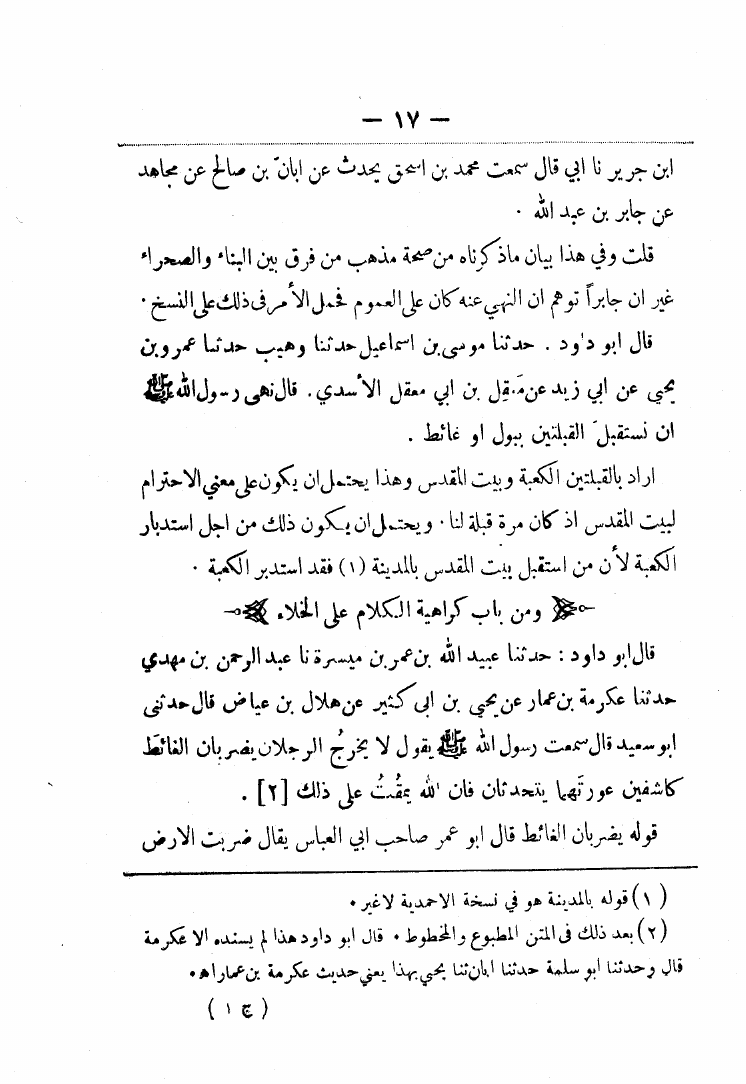 — ١٧ —
ابن جرير نا ابي قال سمعت محمد بن اسحق يحدث عن ابانَ بن صالح عن مجاهد
عن جابر بن عبد الله .
قلت وفي هذا بيان ماذكرناه من صحة مذهب من فرق بين البناء والصحراء
غير ان جابراً توهم ان النهي عنه كان على العموم فحمل الأمر في ذلك على النسخ .
قال ابو داود . حدثنا موسى بن اسماعيل حدثنا وهيب حدثنا عمرو بن
يحيى عن ابي زيد عن مَعقِل بن ابي معقل الأسدي . قال نهى رسول الله ﷺ
ان نستقبلَ القبلتين ببول او غائط .
اراد بالقبلتين الكعبة وبيت المقدس وهذا يحتمل ان يكون على معني الاحترام
لبيت المقدس اذ كان مرة قبلة لنا . ويحتمل ان يكون ذلك من اجل استدبار
الكعبة لأن من استقبل بيت المقدس بالمدينة (١) فقد استدبر الكعبة .
ومن باب كراهية الكلام على الخلاء
قال ابو داود : حدثنا عبيد الله بن عمر بن ميسرة نا عبد الرحمن بن مهدي
حدثنا عكرمة بن عمار عن يحيى بن ابي كثير عن هلال بن عياض قال حدثني
ابو سعيد قال سمعت رسول الله ﷺ يقول لا يخرجُ الرجلان يضربان الغائطَ
كاشفين عورتَهما يتحدثان فان الله يمقُتُ على ذلك [٢] .
قوله يضربان الغائط قال ابو عمر صاحب ابي العباس يقال ضربت الارض
(١) قوله بالمدينة هو في نسخة الاحمدية لاغير .
(٢) بعد ذلك في المتن المطبوع والمخطوط . قال ابو داود هذا لم يسنده الا عكرمة
قال وحدثنا ابو سلمة حدثنا ابان ثنا يحيى بهذا يعني حديث عكرمة بن عمار اه .
( ج ١ )